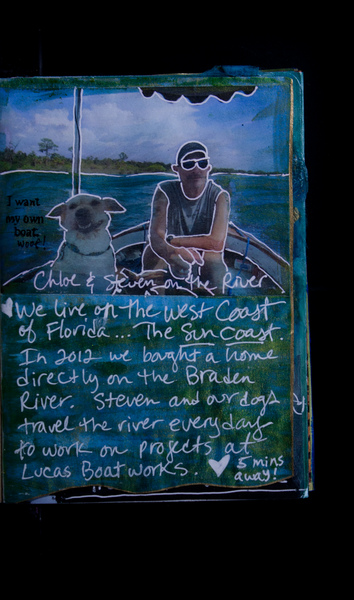 I want
my own
boat.
woof!
Chloe & Steven on the River
We live on the West Coast
of Florida... The Sun Coast.
In 2012 we bought a home
directly on the Braden
River. Steven and our dogs
travel the river everyday
to work on projects at
Lucas Boatworks. 5 mins
away!